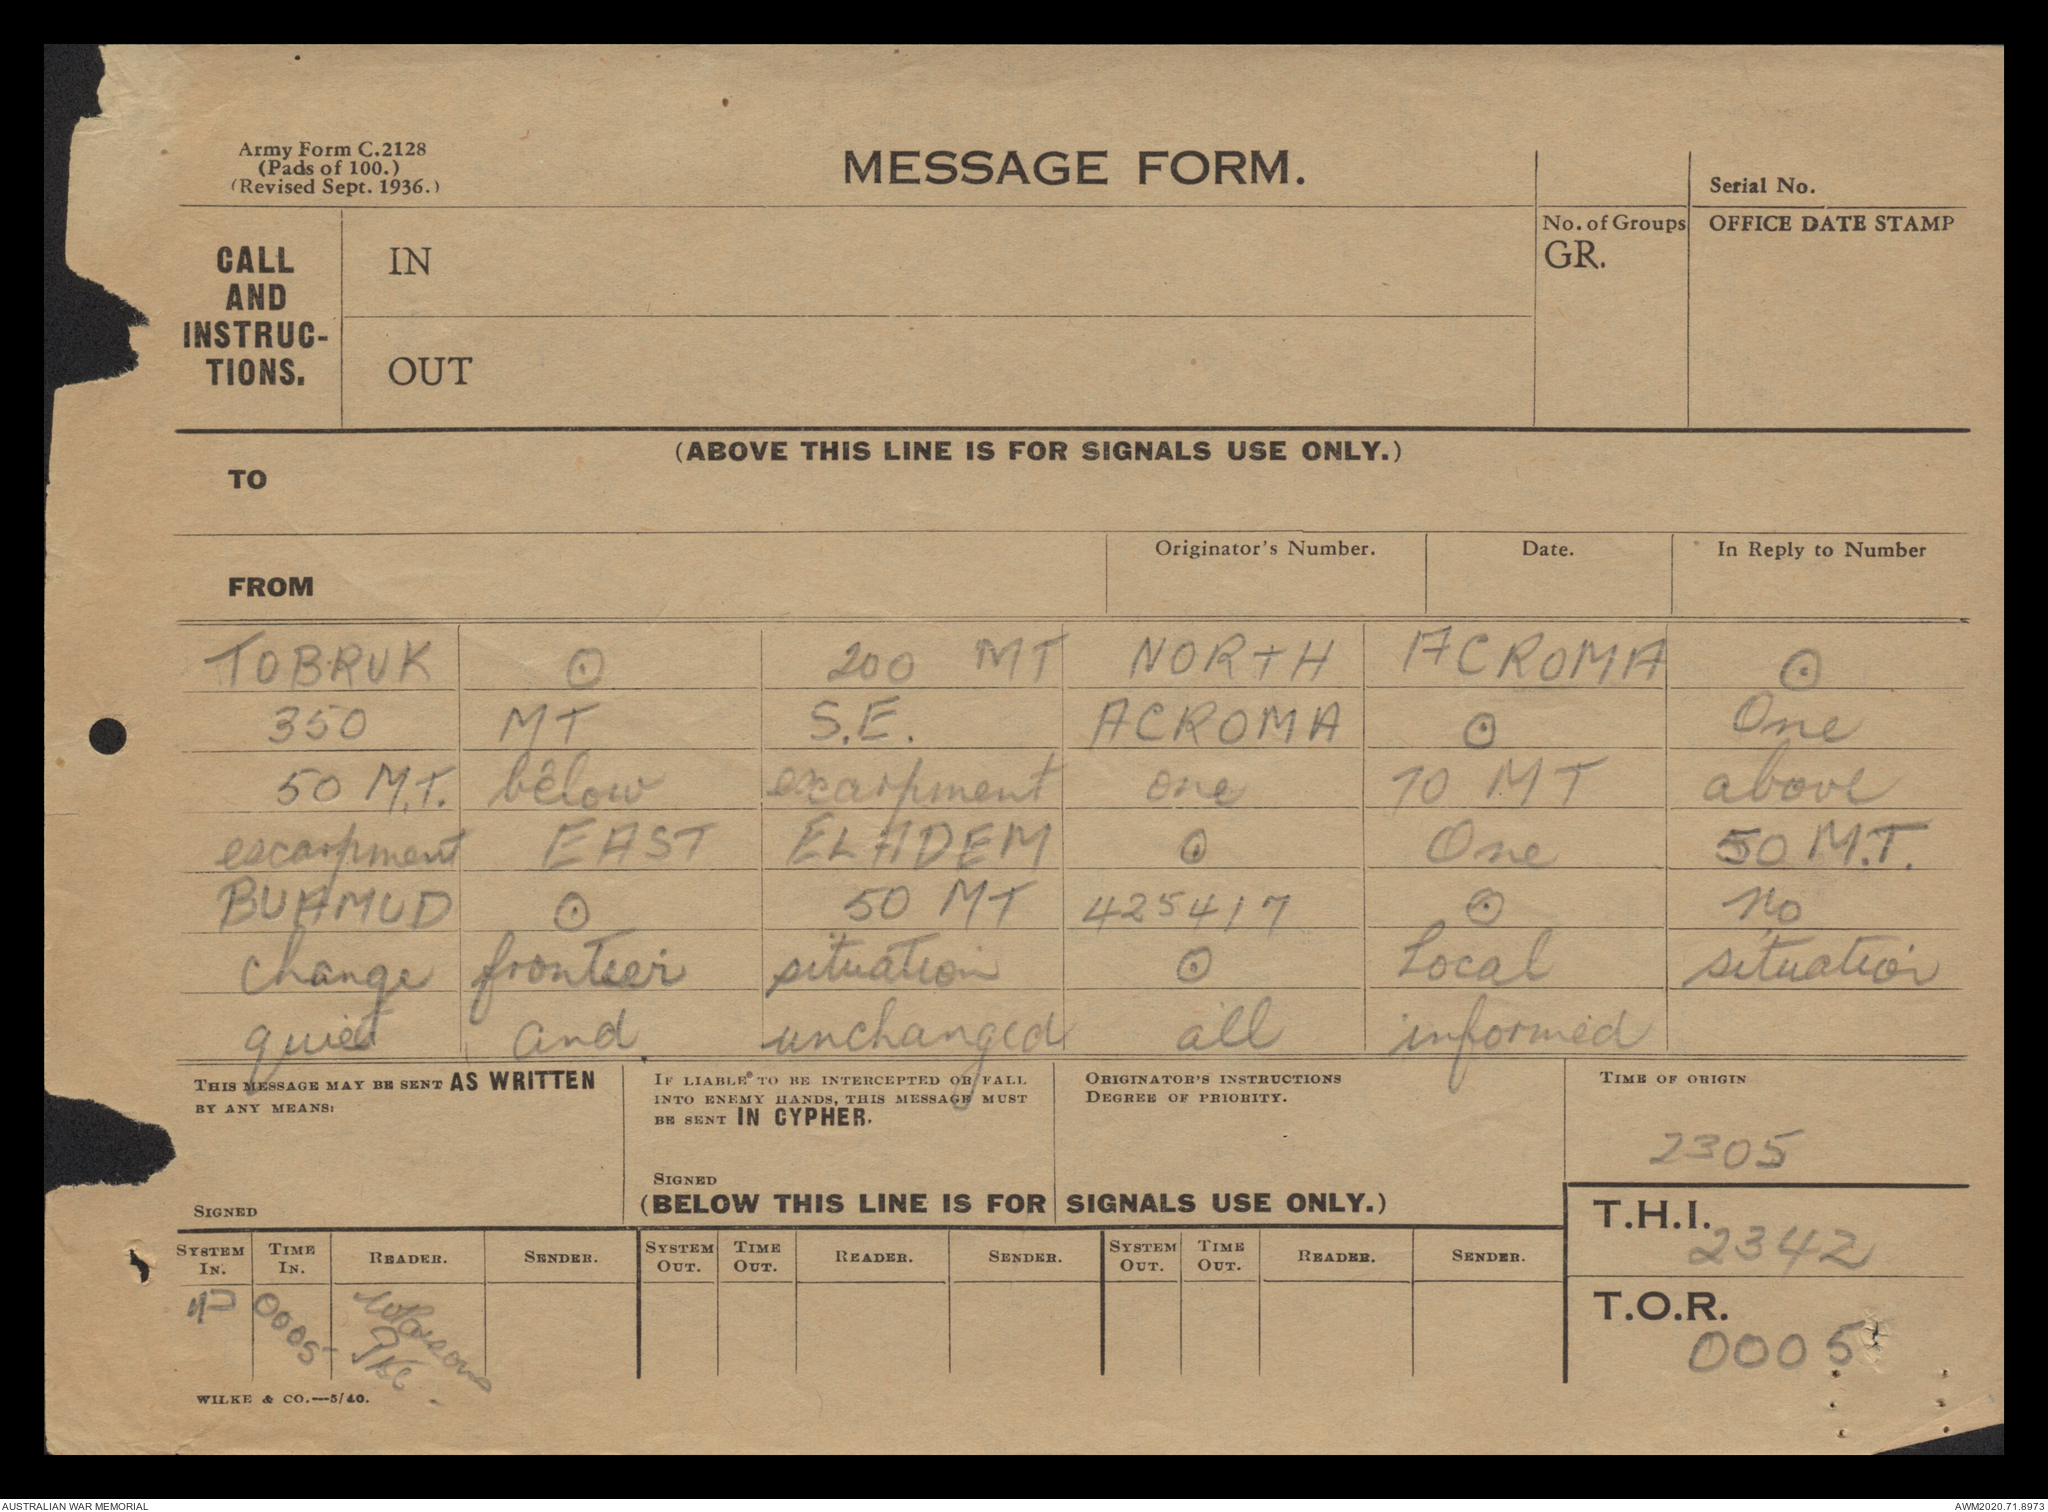 Army Form C.2128
(Pads of 100.)
(Revised Sept. 1936.)
MESSAGE FORM.
Serial No.
CALL
AND
INSTRUC-
TIONS.
IN
OUT
No. of Groups
GR.
OFFICE DATE STAMP
(ABOVE THIS LINE IS FOR SIGNALS USE ONLY.)
TO
FROM
Originator's Number.
Date.
In Reply to Number
TOBRUK ⊙ 200 MT NORTH ACROMA ⊙
350 MT S.E. ACROMA ⊙ One
50 M.T. below escarpment one 70 MT above
escarpment EAST ELADEM ⊙ One 50 M.T.
BUAMUD ⊙ 50 MT 425417 ⊙ No
change frontier situation ⊙ Local situation
quiet and unchanged all informed
THIS MESSAGE MAY BE SENT AS WRITTEN
BY ANY MEANS:
SIGNED
IF LIABLE TO BE INTERCEPTED OR FALL
INTO ENEMY HANDS, THIS MESSAGE MUST
BE SENT IN CYPHER.
SIGNED
ORIGINATOR'S INSTRUCTIONS
DEGREE OF PRIORITY.
TIME OF ORIGIN
2305
(BELOW THIS LINE IS FOR SIGNALS USE ONLY.)
T.H.I.
2342
T.O.R.
0005
SYSTEM IN. TIME IN. READER. SENDER. SYSTEM OUT. TIME OUT. READER. SENDER. SYSTEM OUT. TIME OUT. READER. SENDER.
0005
WILKE & CO.—5/40.
AUSTRALIAN WAR MEMORIAL
AWM2020.71.8973